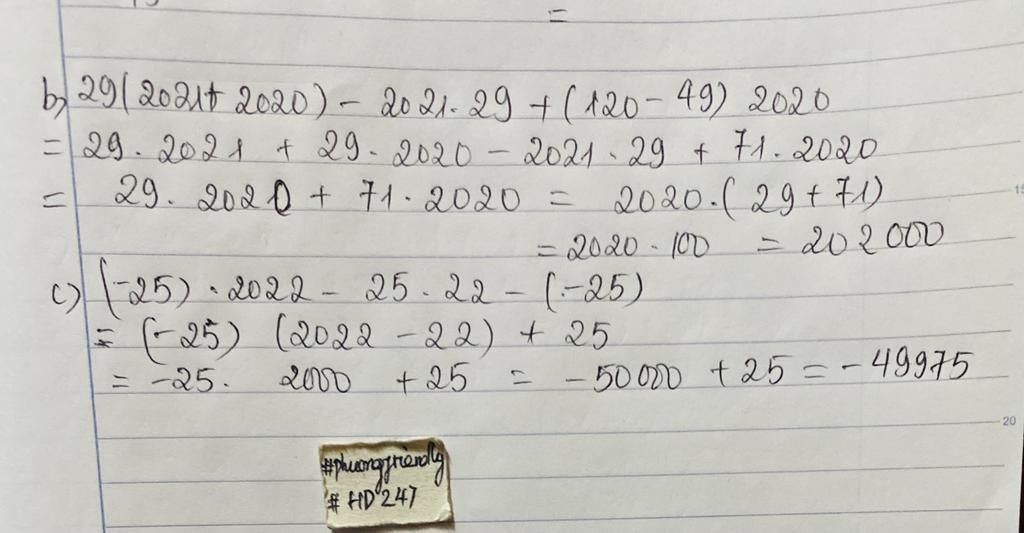 =
b) 29(2021+ 2020) - 2021.29 + (120 - 49) 2020
= 29. 2021 + 29. 2020 - 2021. 29 + 71. 2020
= 29. 2020 + 71. 2020 = 2020.( 29 + 71)
= 2020. 100 = 202000
c) (-25) . 2022 - 25. 22 - (-25)
= (-25) (2022 - 22) + 25
= -25. 2000 + 25 = -50000 + 25 = -49975
20
#phuongfriendly
# HD 247